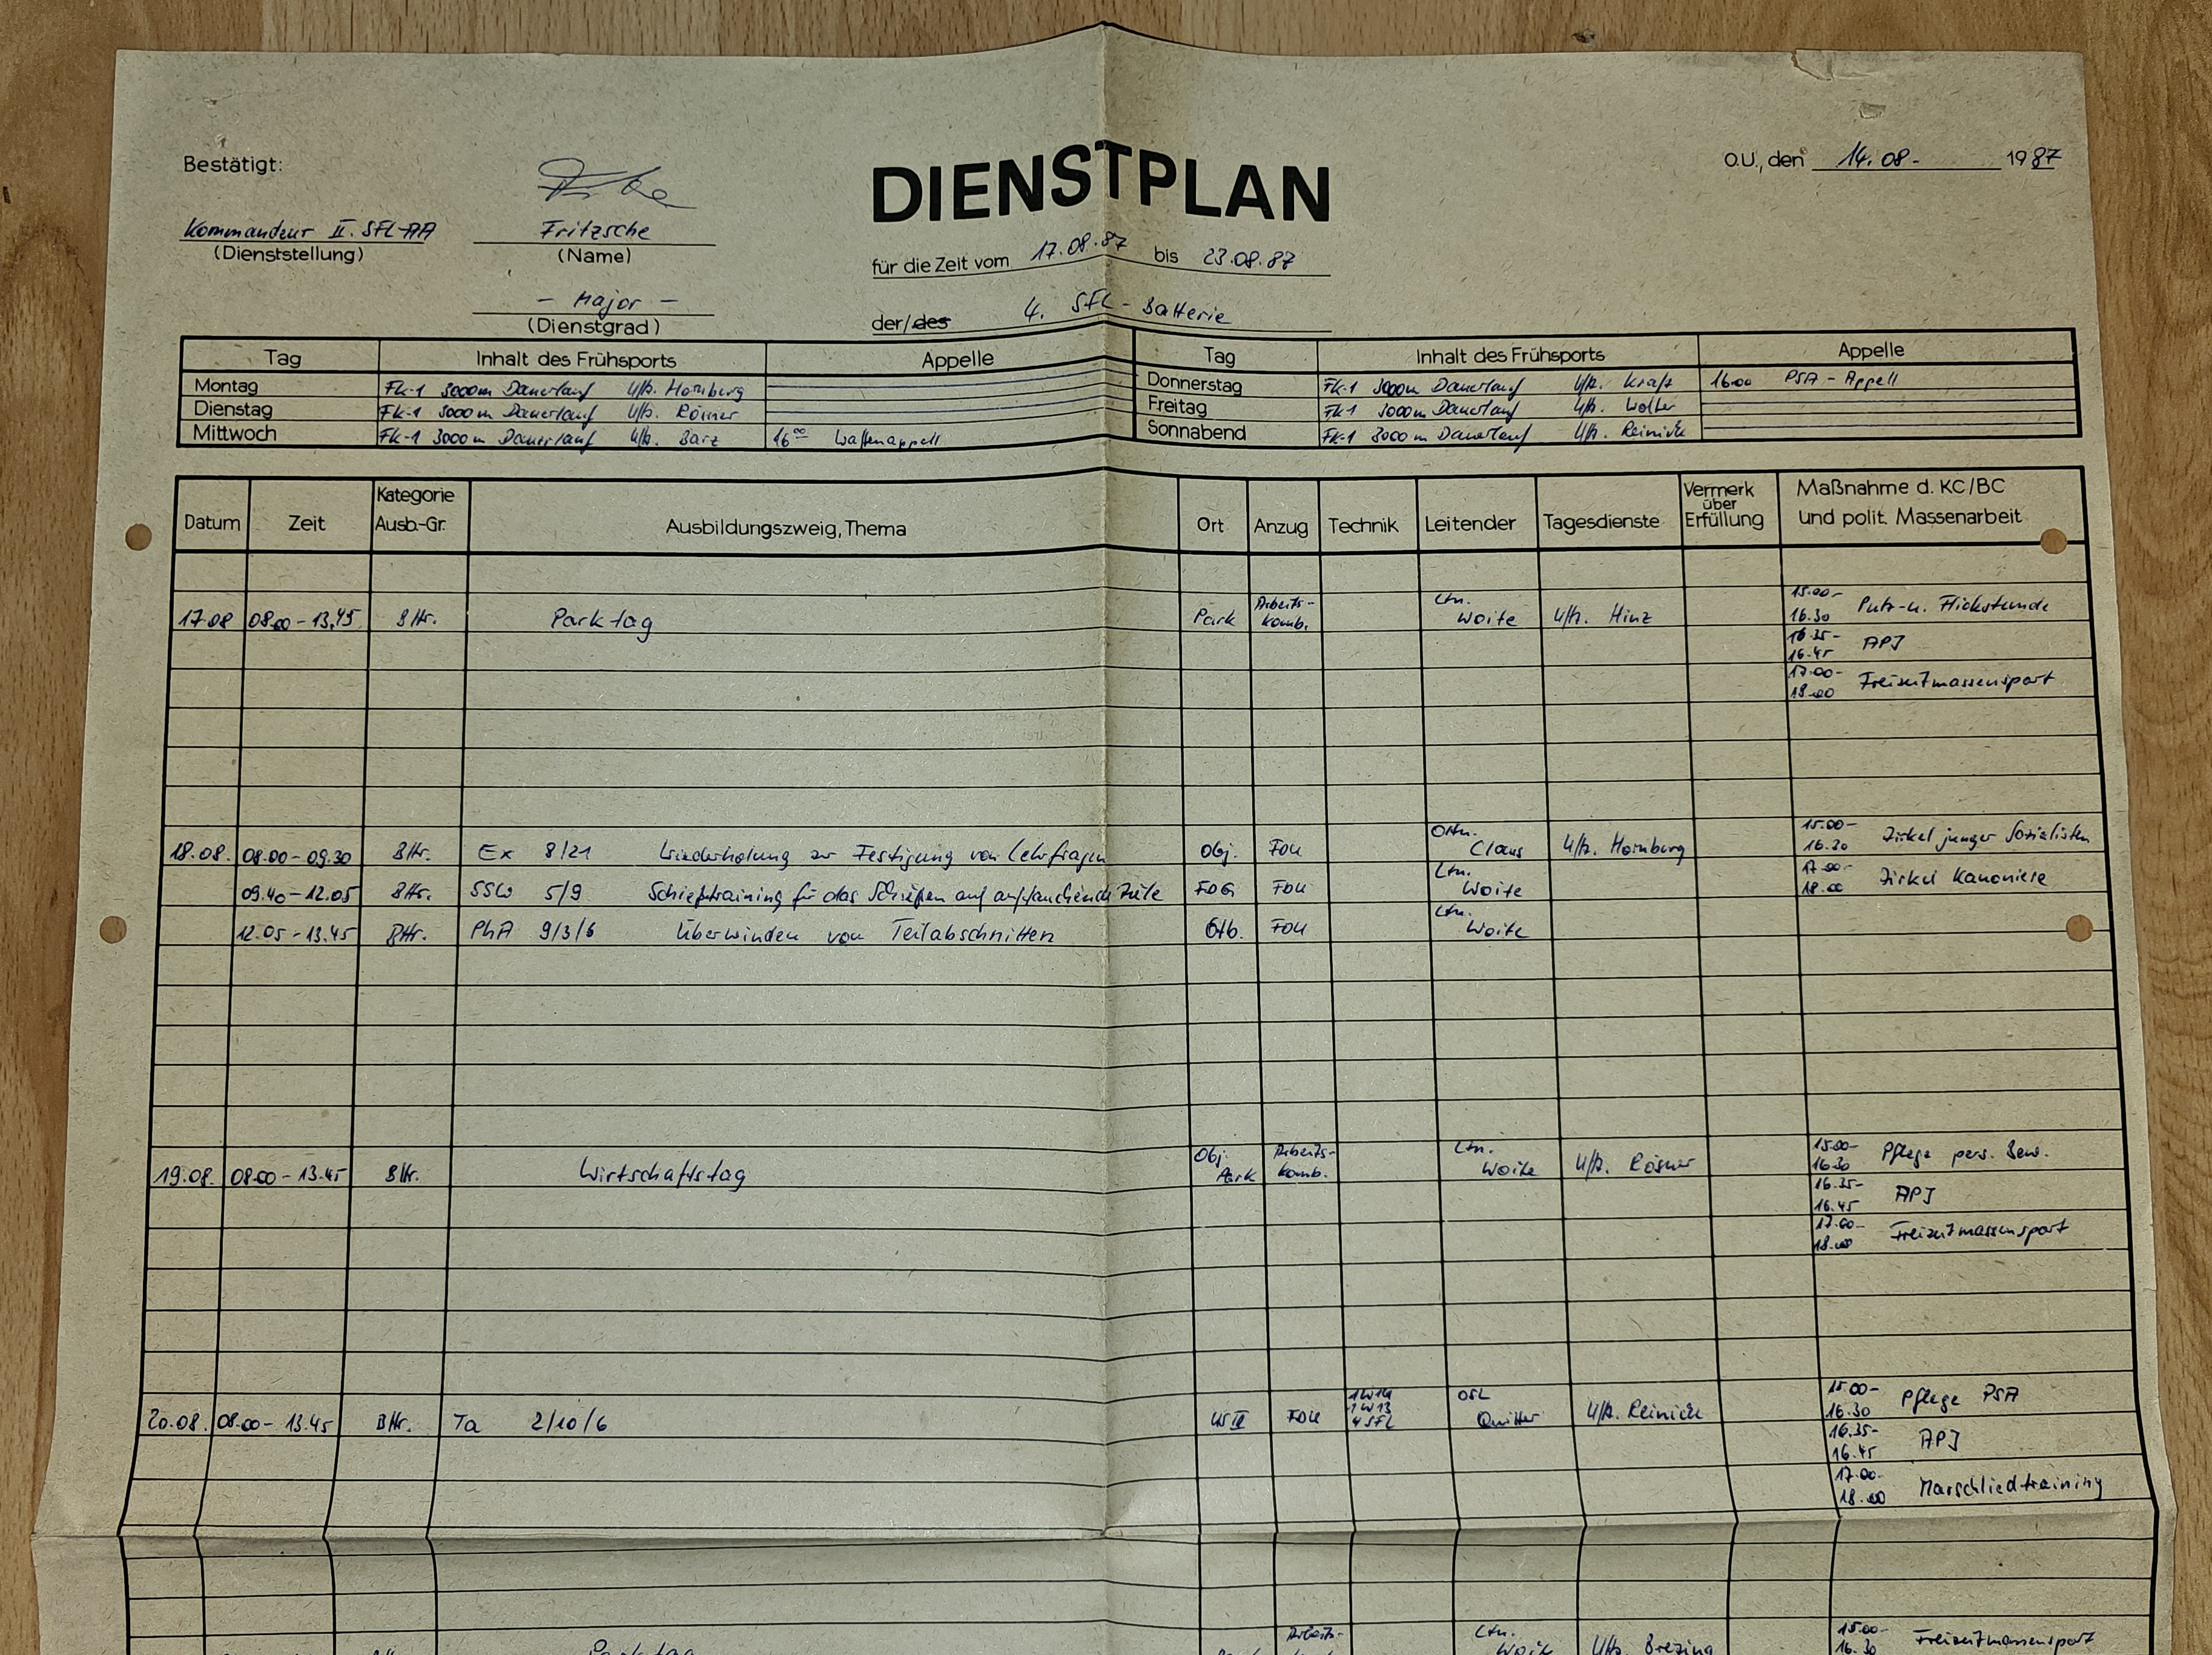 Bestätigt:
DIENSTPLAN
O.U., den 14.08- 1987
Kommandeur II. SFL-AA
(Dienststellung)
Fritzsche
(Name)
- Major -
(Dienstgrad)
für die Zeit vom 17.08.87 bis 23.08.87
der/des 4. SFL-Batterie
Tag Inhalt des Frühsports Appelle Tag Inhalt des Frühsports Appelle
Montag Fk-1 3000m Dauerlauf Uffz. Homburg Donnerstag Fk-1 3000m Dauerlauf Uffz. Kraft 16.00 PSA-Appell
Dienstag Fk-1 3000m Dauerlauf Uffz. Rösner Freitag Fk-1 3000m Dauerlauf Uffz. Wolter
Mittwoch Fk-1 3000m Dauerlauf Uffz. Barz 16⁰⁰ Waffenappell Sonnabend Fk-1 3000m Dauerlauf Uffz. Reinick
Datum Zeit Kategorie Ausb.-Gr. Ausbildungszweig, Thema Ort Anzug Technik Leitender Tagesdienste Vermerk über Erfüllung Maßnahme d. KC/BC und polit. Massenarbeit
17.08 08.00-13.45 Bttr. Parktag Park Arbeits-komb. Ltn. Woite Uffz. Hinz 15.00-16.30 Putz-u. Flickstunde
16.35-16.45 APJ
17.00-18.00 Freizeitmassensport
18.08. 08.00-09.30 Bttr. Ex 8/21 Wiederholung zur Festigung von Lehrfragen Obj. FDU Oltn. Claus Uffz. Homburg 15.00-16.30 Zirkel junger Sozialisten
09.40-12.05 Bttr. SSW 5/9 Schießtraining für das Schießen auf auftauchende Ziele FDG FDU Ltn. Woite 17.00-18.00 Zirkel Kanoniere
12.05-13.45 Bttr. PhA 9/3/6 Überwinden von Teilabschnitten FDU Ltn. Woite
19.08. 08.00-13.45 Bttr. Wirtschaftstag Obj. Park Arbeits-komb. Ltn. Woite Uffz. Rösner 15.00-16.30 Pflege pers. Bew.
16.35-16.45 APJ
17.00-18.00 Freizeitmassensport
20.08. 08.00-13.45 Bttr. Ta 2/10/6 FDU 4 SFL OSL Quitter Uffz. Reinick 15.00-16.30 Pflege PSA
16.35-16.45 APJ
17.00-18.00 Marschliedtraining
Parktag Arbeits- Ltn. Woite Uffz. Brezing 15.00-16.30 Freizeitmassensport